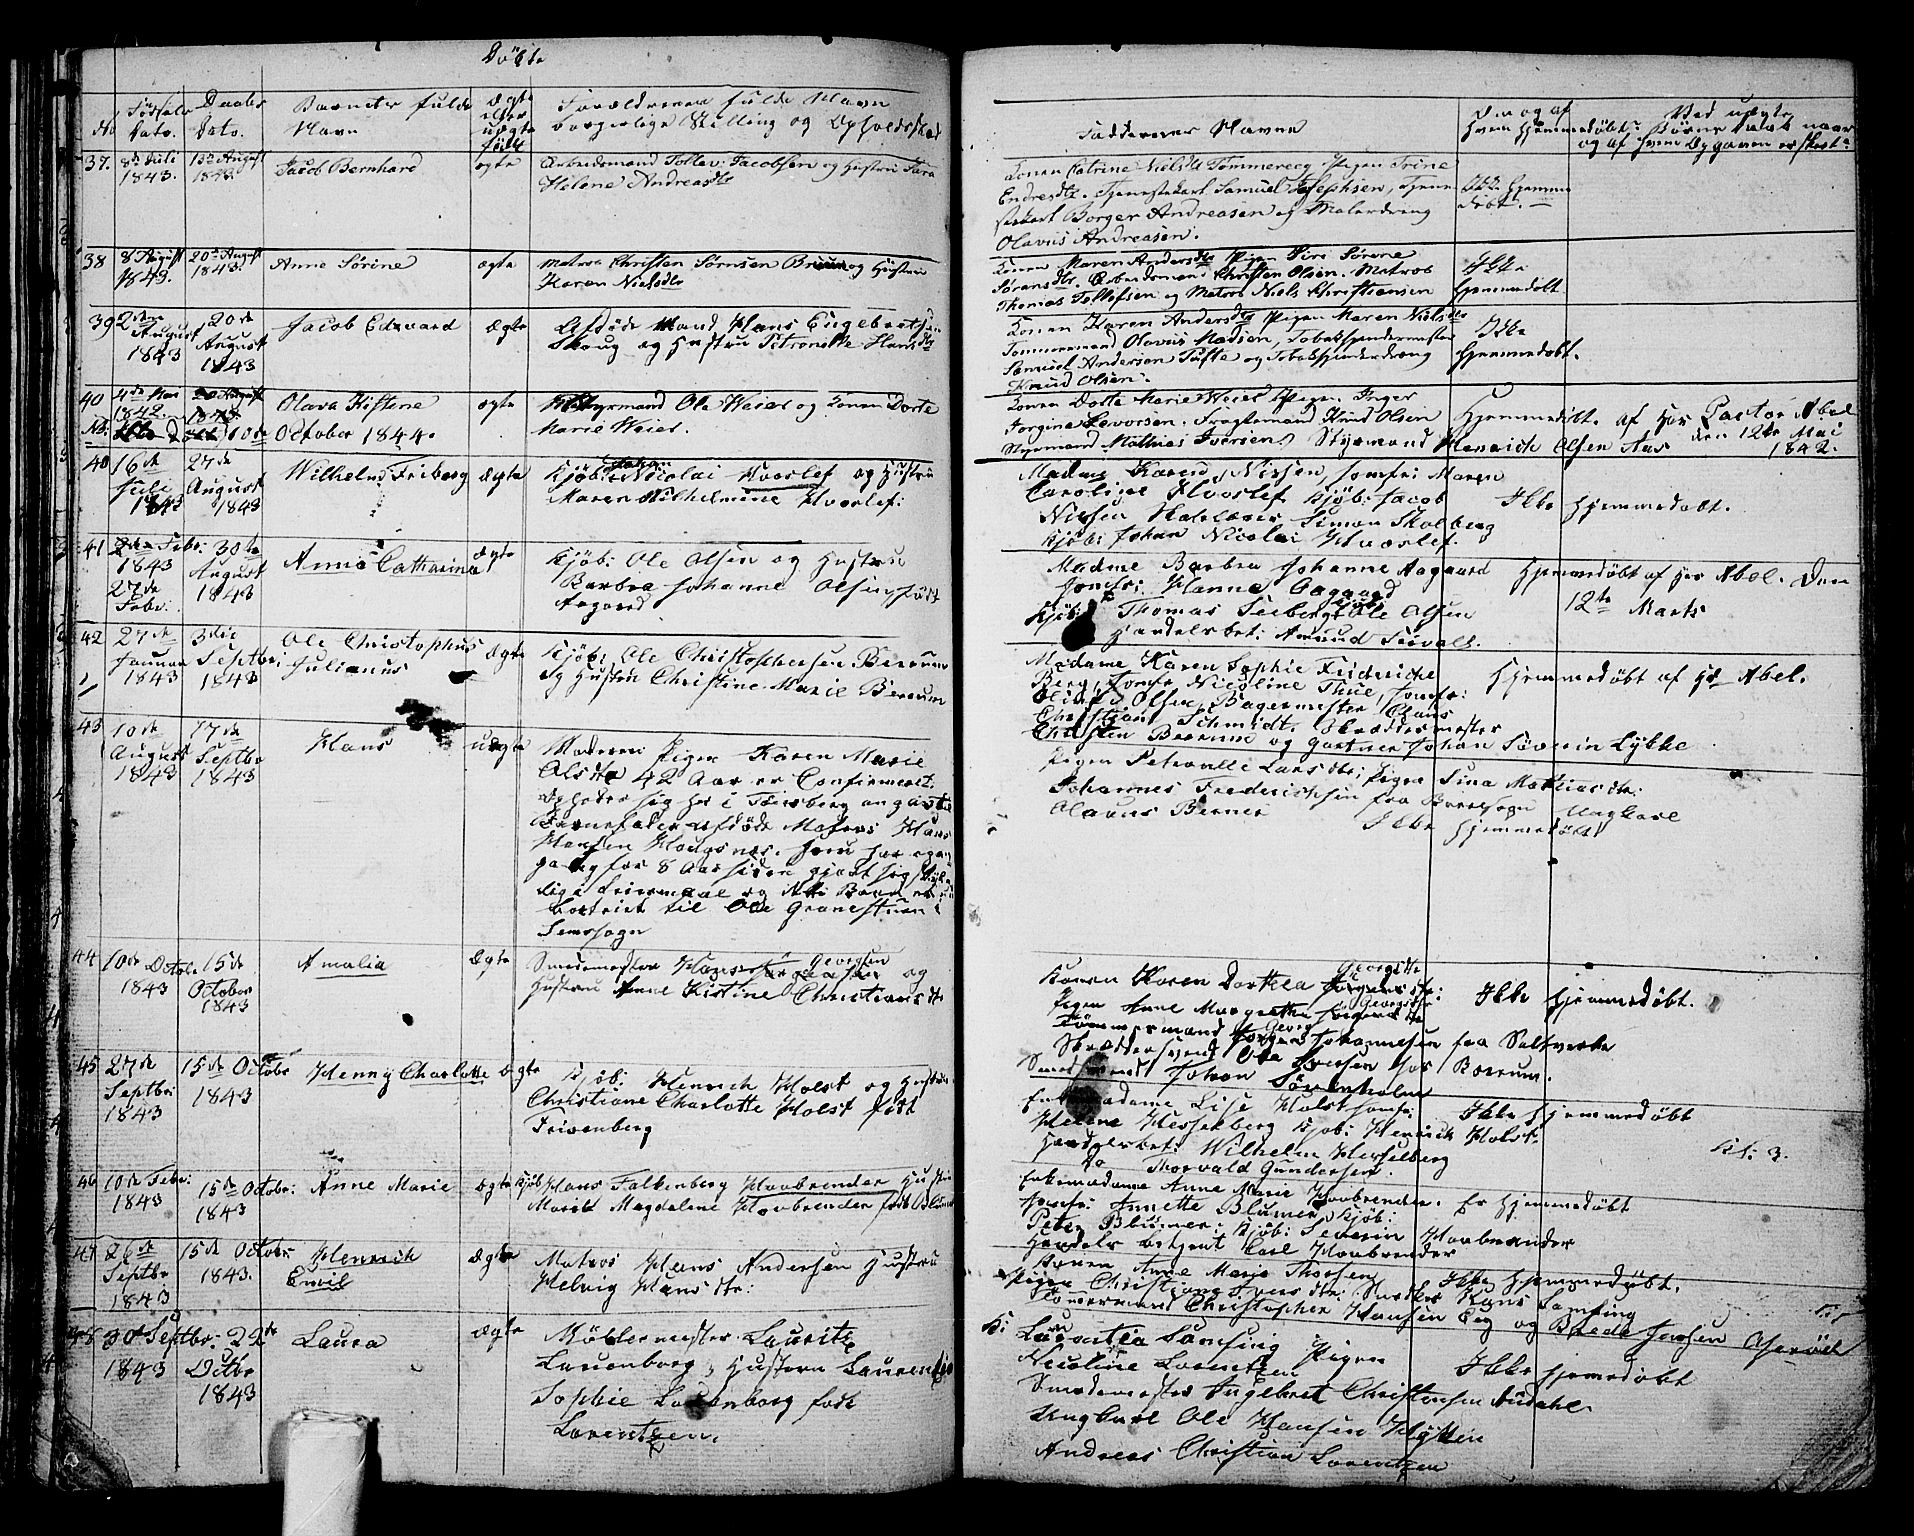 Döbte
No
Födsels Dato.
Daabs Dato.
Barnets fulde Navn
Ægte eller uægte født
Forældrenes fulde Navn borgerlige Stilling og Opholdssted
37.
8de Juli 1843.
13de August 1843.
Jacob Bernhard
ægte
Arbeidsmand Tollev Jacobsen og Hustru Sara
Helene Andreasdtr
38
8 August 1843.
20de August 1843.
Anne Sørine
ægte
Matros Christen Sørnsen Bruun og Hustru
Karen Nielsdtr
39
August 1843
20de August 1843
Jacob Edvard
Ægte
Afdøde Mand Hans Engebretsen
Skoug og Hustru Petronelle Hansdtr
40
4de Mai 1842.
Olava Kistene
October 1844.
ægte
Styrmand Ole Weier og Konen Dorte
Marie Weier.
40
16de Juli 1843
27de August 1843
Wilhelm Friberg
Ægte
Kjöb: Johan Nicolai Hvoslef og Hustru
Maren Wilhelmine Hvoslef:
41
Febr: 1843
27de Febr:
30te August 1843
Anne Catharina
Ægte
Kjöb: Ole Olsen og Hustru
Barbra Johanne Olsen, født
Aagaard
42
27de Januar 1843
3die Septbr: 1843
Ole Christophus
Julianus
Ægte
Kjöb: Ole Christophersen Berrum
Og Hustru Christine Marie Berrum
43
10de August 1843
17de Septbr 1843
Hans
uægte
Moderen Pigen Karen Marie
Olsdtr 42 Aar er Confirmeret.
Opholder sig her i Tønsberg angivne
Barnefader afdøde Matros Hans
Hansen Hougsnes. som har
gang for 8 Aar siden gjort sig
dige Leiermaal og
til Ole Granestuen
Semssogn
44
10de Octob. 1843
15de October 1843
Amalia
Ægte
Smedemester Hans Georgsen og
Hustru Anne Kistine Christiansdtr
45
27de Septbr: 1843
15de Octobr 1843
Henny Charlotte
Ægte
Kjöb: Henrich Holst og Hustru
Christiane Charlotte Holst født
Frisenberg
46
10de Febr: 1843
15de Octobr: 1843
Anne Marie
Ægte
Kjöb Hans Falkenberg Havbrender Hustru
Magdalene Havbrender født Blumer
47
26de Septbr 1843
15de Octobr: 1843.
Henrich
Emil
Ægte
Matros Hans Andersen Hustru
Helvig Hansdtr:
48
30te Septbr: 1843
22de Octbr 1843
Laura
Ægte
Møllermester Lauritz
Lauenborg, Hustru Laurentze
Sophie Lauenborg født
Lorentzen.
Faddernes Navne
Om og af hvem Hjemmedøbt:
Ved uægte Børns Daab naar og af hvem Opgaven er skeet:
Konen Catrine Nielsdtr Tommereeg Pigen Trine
Endresdtr. Tjenestekarl Samuel Josephsen, Tjene
stekarl Borger Andreasen og Malerdreng
Olavus Andreasen.
Ikke Hjemmedøbt.
Konen Maren Andersdtr Pigen Siri Sørene
Sørensdtr. Arbeidsmand Christen Olsen. Matros
Thomas Tollefsen og Matros Niels Christiansen
Ikke Hjemmedøbt
Konen Karen Andersdtr Pigen Maren Nielsdtr
Tommermand Olavus Madsen, Tobakspindermester
Samuel Andersen Tufte og Tobakspinderdreng
Knud Olsen.
Ikke Hjemmedøbt.
Konen Dorte Marie Weier Pigen Inger
Jorgine Levorsen. Fragtemand Knud Olsen
Styrmand Mathias Iversen, Styrmand Henrich Olsen Aas
Hjemmedøbt. af Her Pastor Abel
den 12te Mai 1842.
Madame Karen Nissen, Jomfr: Maren
Caroline Hvoslef Kjöb: Jacob
Nissen Simon Stolberg
Kjöb: Johan Nicolai Hvoslef.
Ikke Hjemmedøbt.
Madme Barbra Johanne Aagaard
Jomfr: Hanne Aagaard
Kjöb: Thomas Seeberg Kjöb: Ole Olsen
Handelsbet: Amund Sivals.
Hjemmedøbt af Her Abel. Den
12te Marts
Madame Karen Sophie Frideriche
Berg, Jomfr Nicoline Thue, Jomfr:
Olive Olsen, Bagermester Claus
Christian Schmidt. Skreddermester
Christen Berrum og Gartner Johan Severin Lykke
Hjemmedøbt af Hr Abel.
Pigen Petronelle Larsdtr: Pigen Sina Mathiasdtr:
Johannes Frederichsen fra Borresogn Ungkarl
Olaus Berner
Ikke Hjemmedøbt
Konen Karen Dorthea Georgsdtr
Pigen Anne Margrethe Georgsdtr:
Tömmermand Georg Johannesen fra Saltverke
Skreddersvend Ole Iversen hos Berrum.
Smedsvend Johan Sørenholm
Ikke Hjemmedøbt.
Enkemadame Lise Holst Jomfr:
Helene Hesselberg Kjöb: Henrich Holst
Handelsbet: Wilhelm Hesselberg
do Thorvald Gundersen.
Ikke Hjemmedøbt
Kl: 3.
Enkemadame Anne Marie Havbrender.
Jomfr: Annette Blumer, Kjöb:
Peter Blumer: Kjöb: Severin Havbrander
Handels betjent Carl Havbrender
Er Hjemmedøbt
Konen Anne Marie Thorsen
Pigen Christiane Iversdtr: Snedker Hans Lamfing
Tömmermand Christopher Hansen Eeg og Brede Jensen Aserød
Ikke Hjemmedøbt.
K: Laurentia Lamfing Pigen
Nicoline Lorentzen
Smedemester Engebret Christensen Audahl
Ungkarl Ole Hansen Hytten
Andreas Christian Lorentzen
Ikke Hjemmedøbt